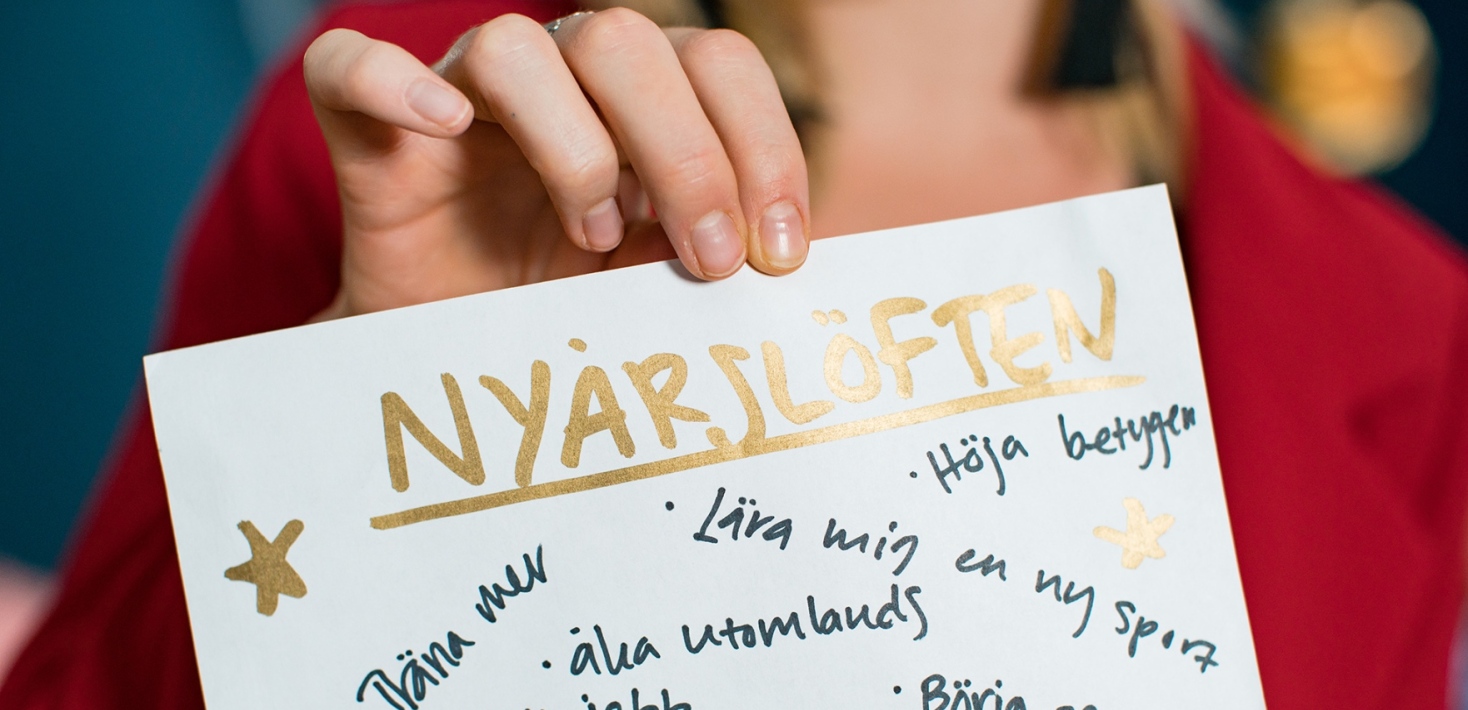 NYÅRSLÖFTEN
· Höja betygen
· Lära mig en ny sport
Träna mer
· åka utomlands
jobb
· Börja